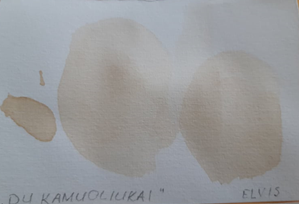 DU KAMUOLIUKAI"
ELVIS